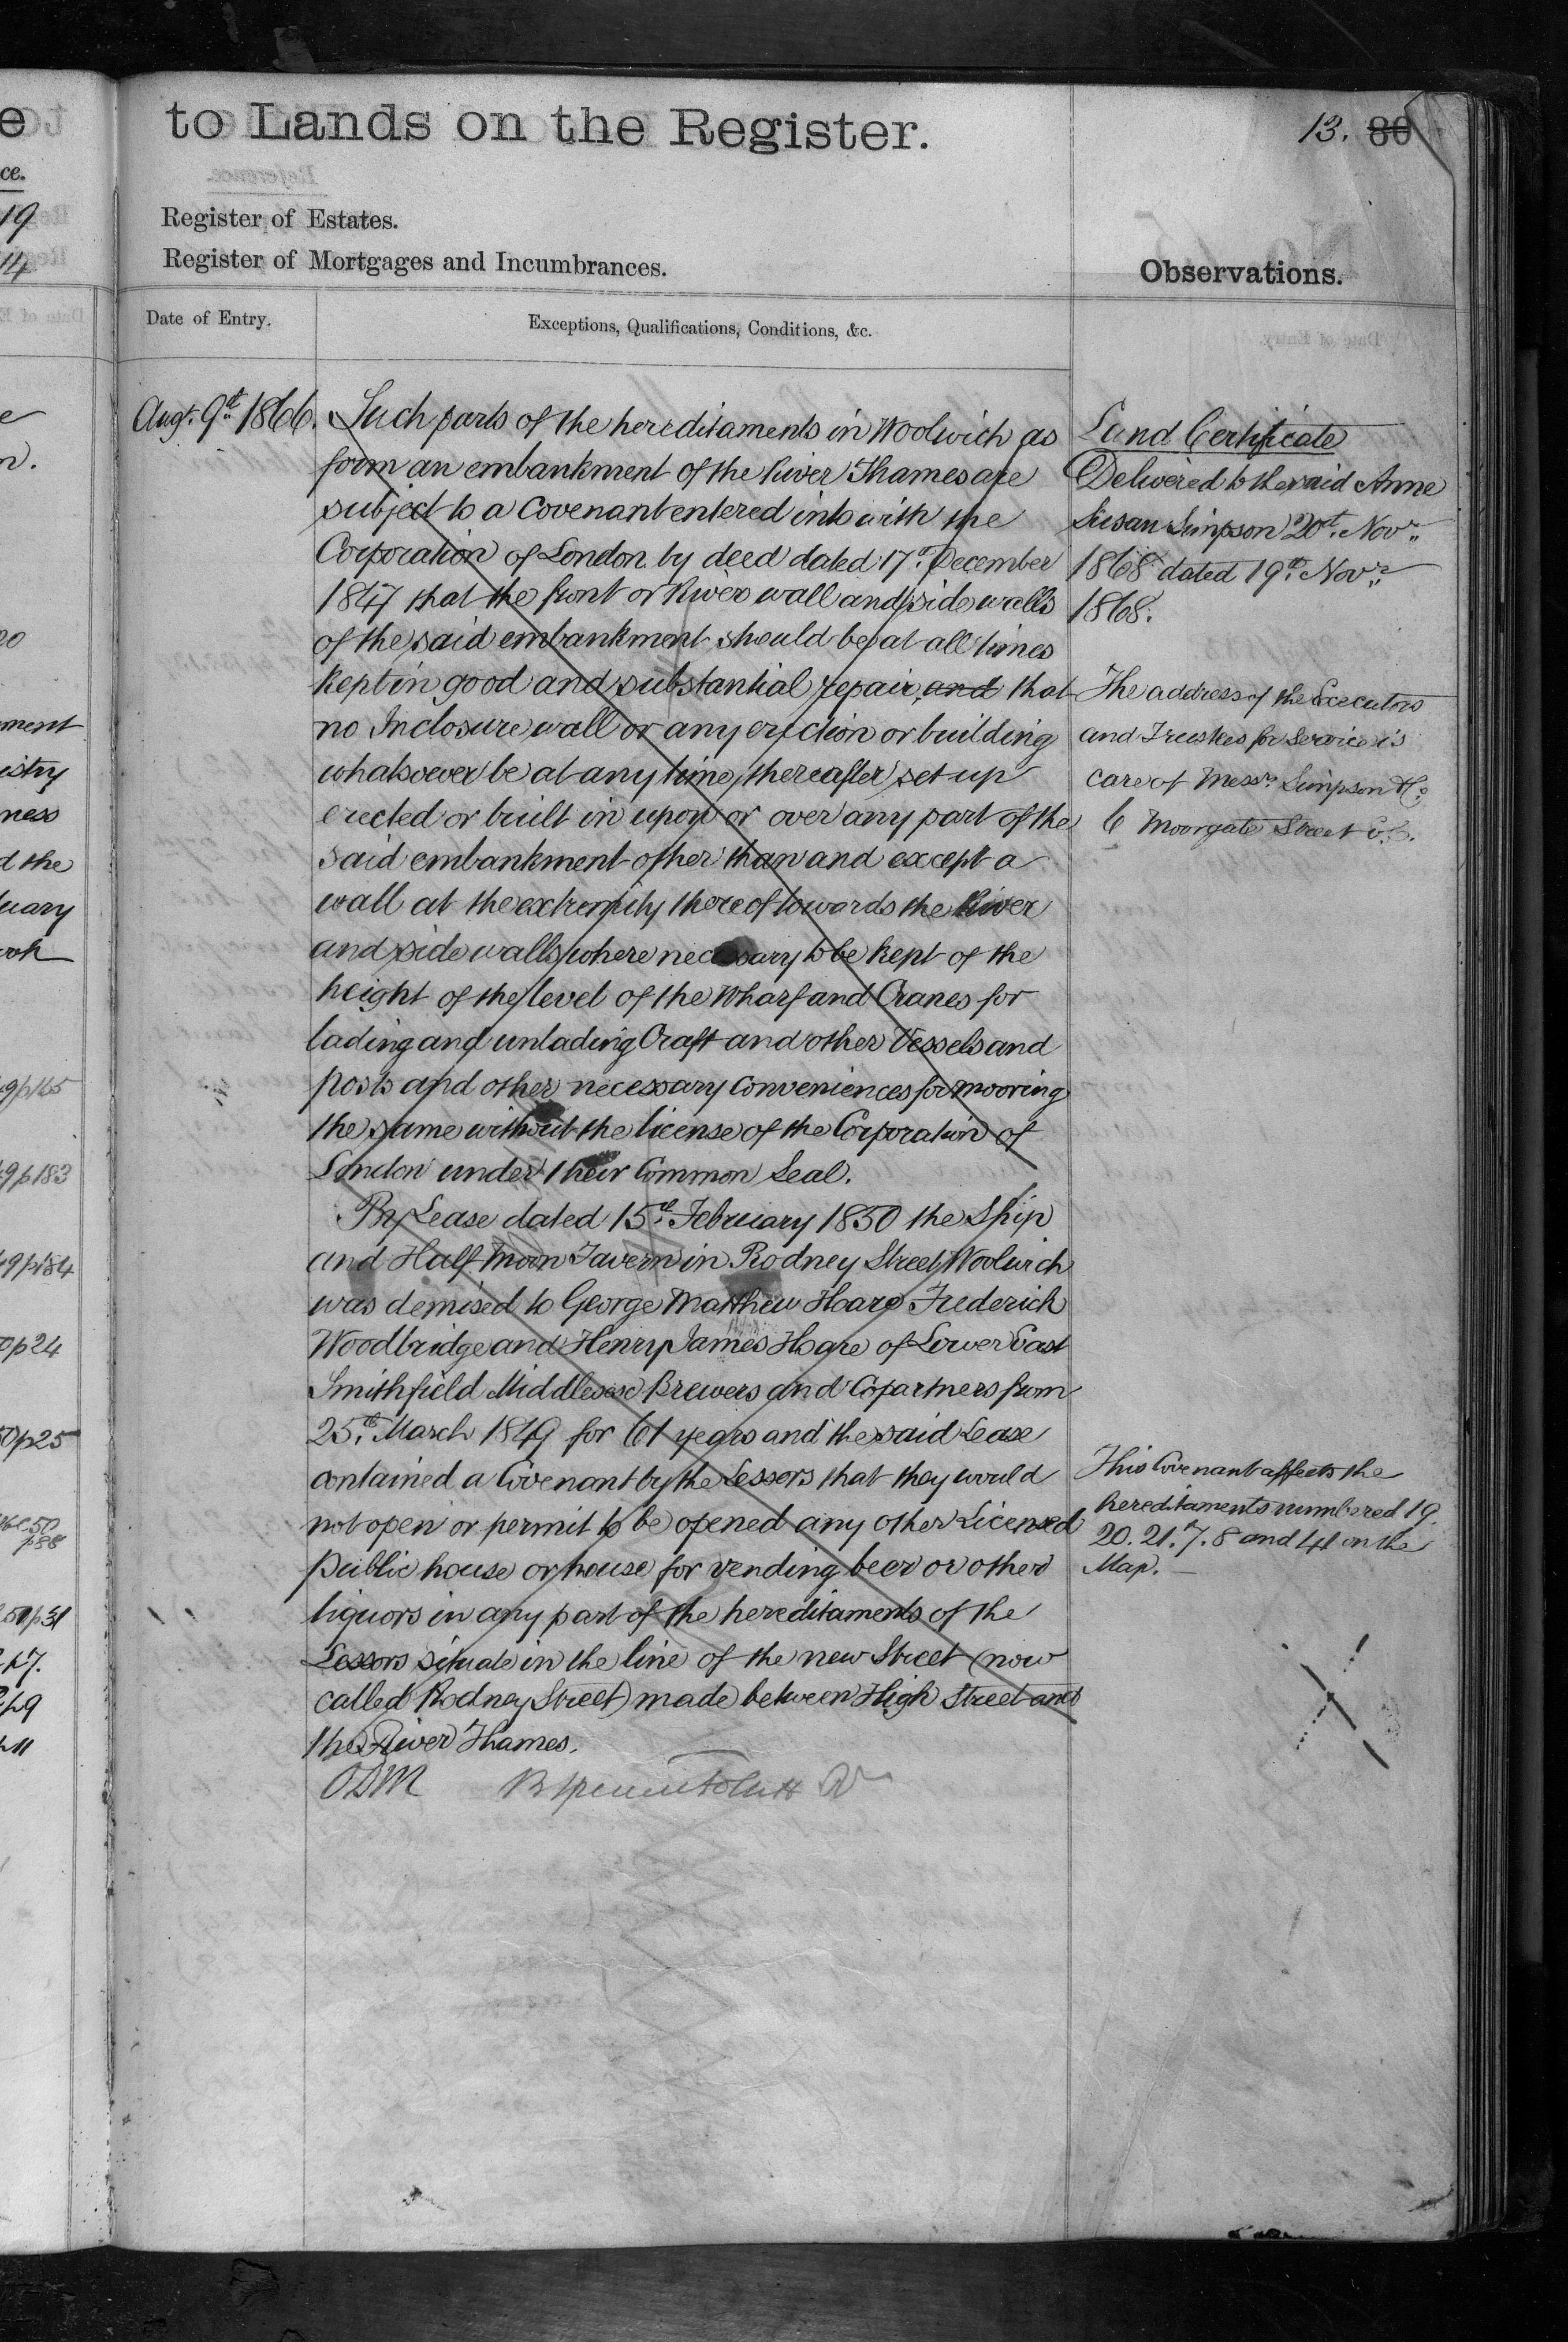 to Lands on the Register.
13. 80
Register of Estates.
Register of Mortgages and Incumbrances.
Observations.
Date of Entry.
Exceptions, Qualifications, Conditions, &c.
Augt. 9th 1866.
Such parts of the hereditaments in Woolwich as
form an embankment of the River Thames are
subject to a Covenant entered into with the
Corporation of London by deed dated 17th December
1847 that the front or River wall and side walls
of the said embankment should be at all times
kept in good and substantial repair, and that
no Inclosure wall or any erection or building
whatsoever be at any time thereafter set up
erected or built in upon or over any part of the
said embankment other than and except a
wall at the extremity thereof towards the River
and side walls where necessary to be kept of the
height of the level of the Wharf and Cranes for
lading and unlading Craft and other Vessels and
posts and other necessary conveniences for mooring
the same without the license of the Corporation of
London under their Common Seal.
By Lease dated 15th February 1850 the Ship
and Half Moon Tavern in Rodney Street Woolwich
was demised to George Matthew Hoare Frederick
Woodbridge and Henry James Hoare of Lower East
Smithfield Middlesex Brewers and Copartners from
25th March 1849 for 61 years and the said Lease
contained a Covenant by the Lessors that they would
not open or permit to be opened any other Licensed
public house or house for vending beer or other
liquors in any part of the hereditaments of the
Lessors situate in the line of the new Street (now
called Rodney Street) made between High Street and
the River Thames.
ODM
Land Certificate
Delivered to the said Anne
Susan Simpson 20th Novr.
1868 dated 19th Novr.
1868.
The address of the Executors
and Trustees for Service is
care of Messrs. Simpson & Co.
6 Moorgate Street E.C.
This Covenant affects the
hereditaments numbered 19.
20. 21. 7. 8 and 41 on the
Map.
e
ce.
19
14
n.
ment
istry
ness
d the
uary
9 p 165
9 p 183
9 p 184
0 p 24
50 p 25
50
p 88
50 p 31